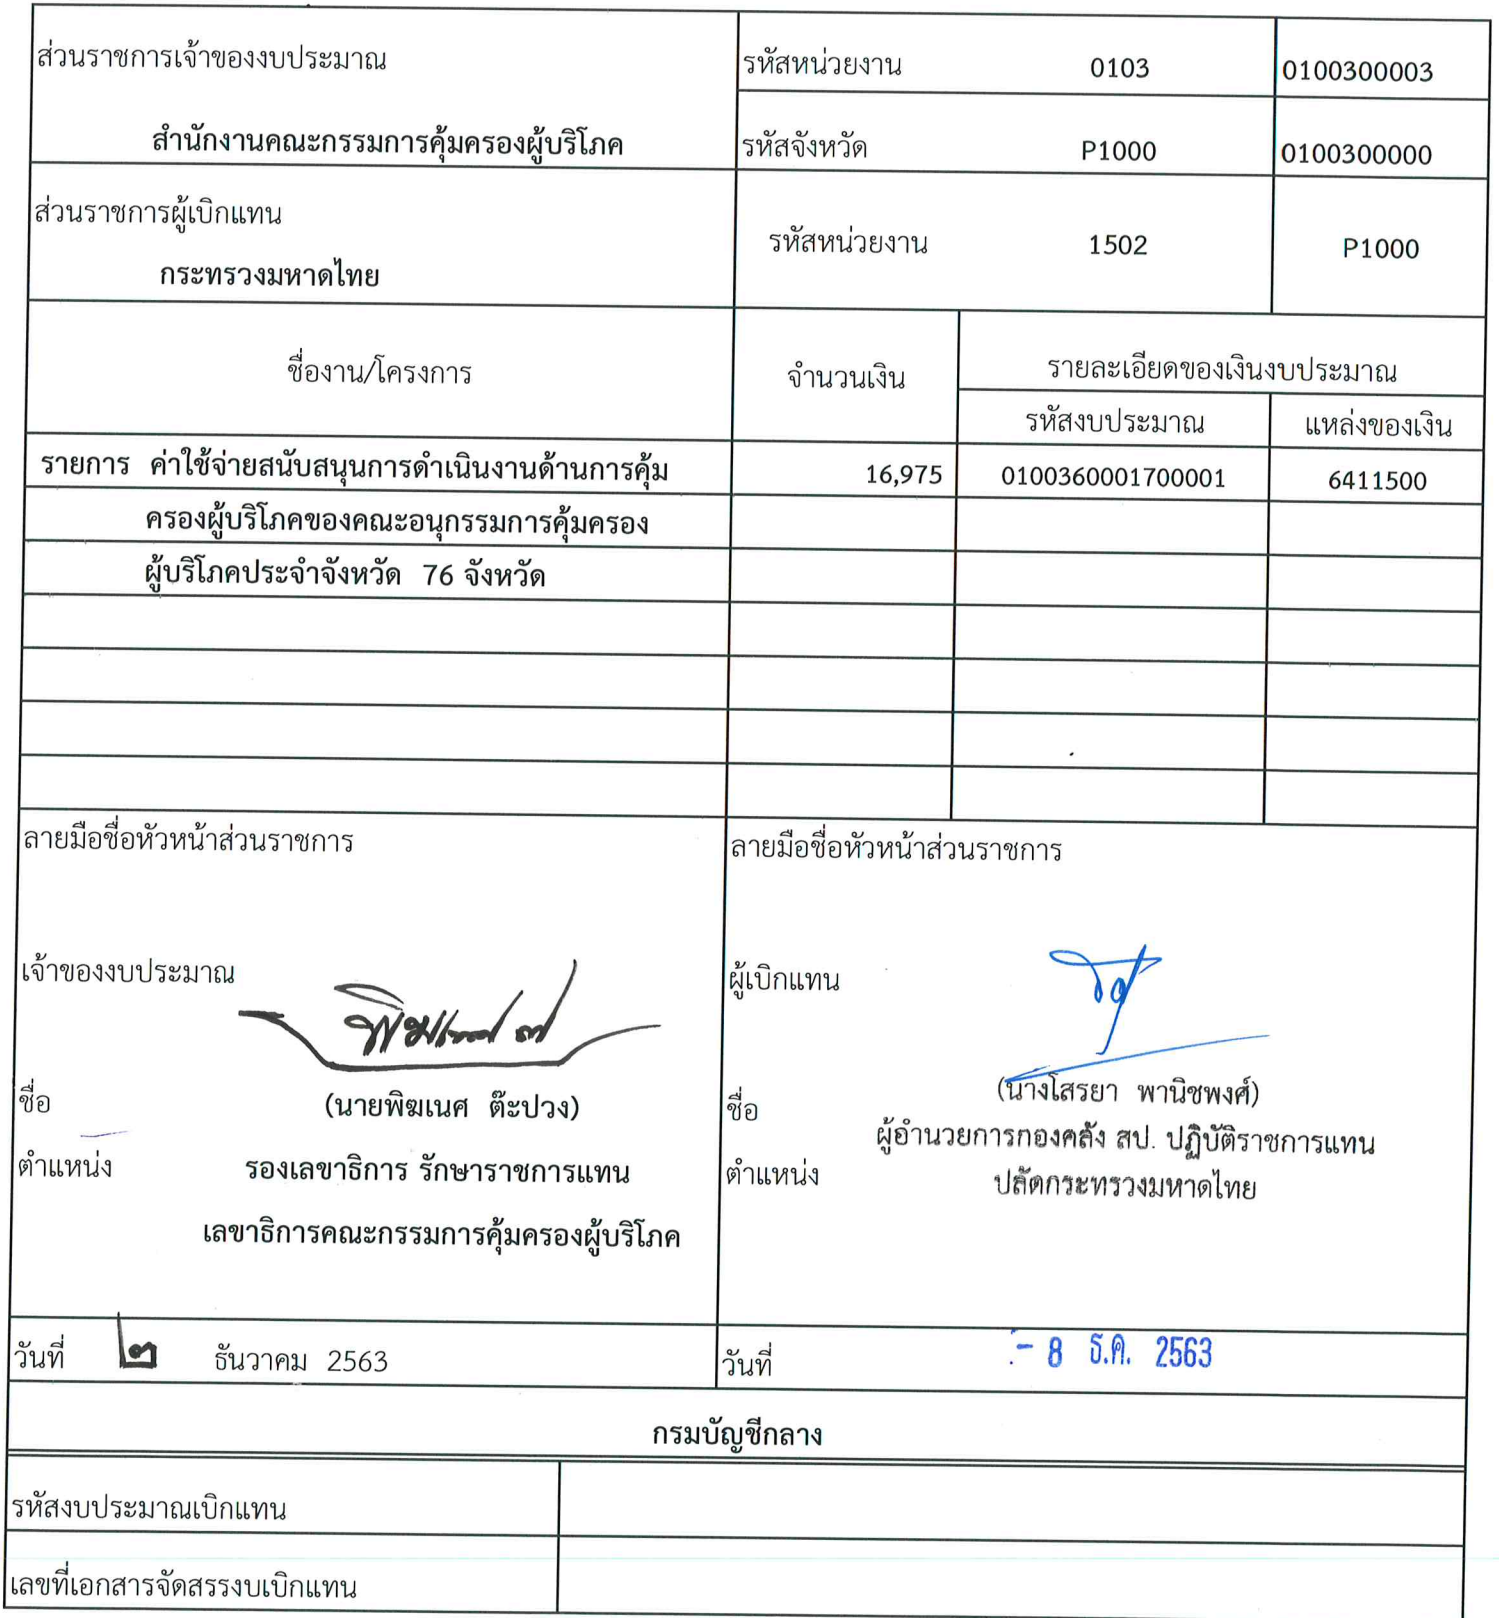 ส่วนราชการเจ้าของงบประมาณ
สำนักงานคณะกรรมการคุ้มครองผู้บริโภค
รหัสหน่วยงาน 0103 0100300003
รหัสจังหวัด P1000 0100300000
ส่วนราชการผู้เบิกแทน
กระทรวงมหาดไทย
รหัสหน่วยงาน 1502 P1000
ชื่องาน/โครงการ จำนวนเงิน รายละเอียดของเงินงบประมาณ
รหัสงบประมาณ แหล่งของเงิน
รายการ ค่าใช้จ่ายสนับสนุนการดำเนินงานด้านการคุ้ม 16,975 0100360001700001 6411500
ครองผู้บริโภคของคณะอนุกรรมการคุ้มครอง
ผู้บริโภคประจำจังหวัด 76 จังหวัด
ลายมือชื่อหัวหน้าส่วนราชการ
เจ้าของงบประมาณ
ชื่อ (นายพิฆเนศ ต๊ะปวง)
ตำแหน่ง รองเลขาธิการ รักษาราชการแทน
เลขาธิการคณะกรรมการคุ้มครองผู้บริโภค
วันที่ ๒ ธันวาคม 2563
ลายมือชื่อหัวหน้าส่วนราชการ
ผู้เบิกแทน
ชื่อ (นางโสรยา พานิชพงศ์)
ผู้อำนวยการกองคลัง สป. ปฏิบัติราชการแทน
ตำแหน่ง ปลัดกระทรวงมหาดไทย
วันที่ - 8 ธ.ค. 2563
กรมบัญชีกลาง
รหัสงบประมาณเบิกแทน
เลขที่เอกสารจัดสรรงบเบิกแทน